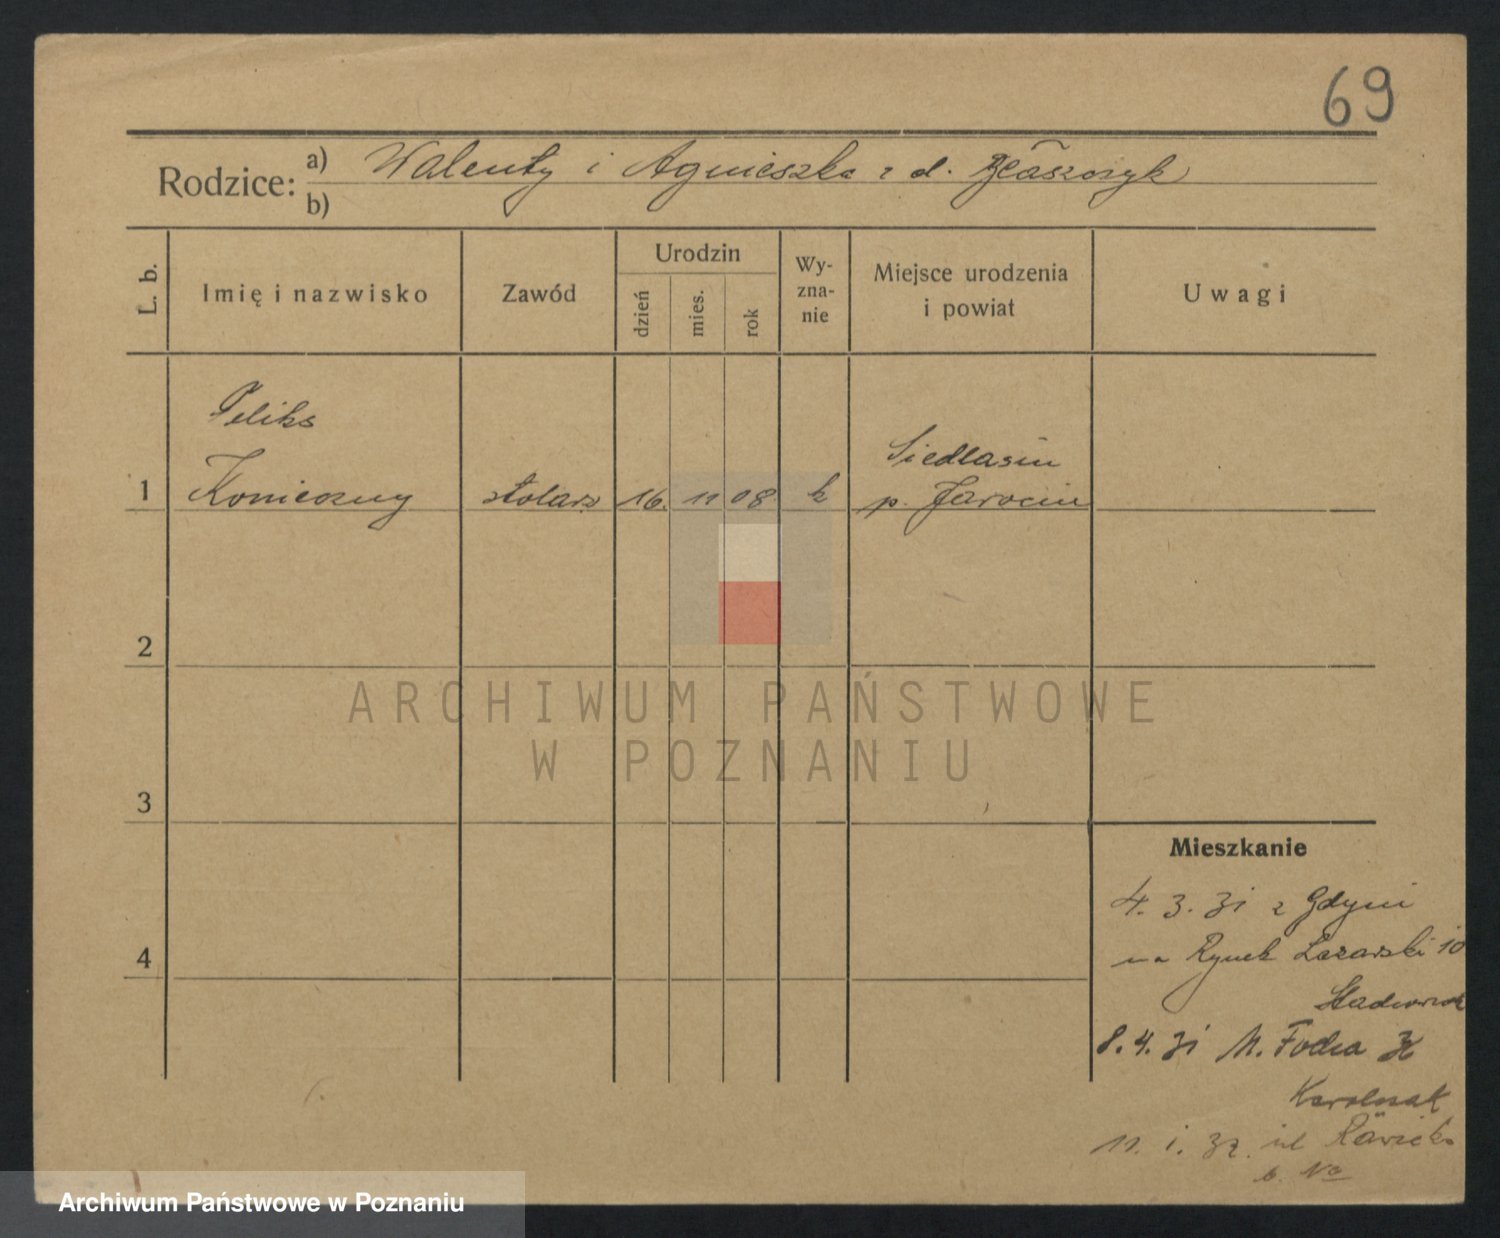 69
Rodzice: a) Walenty i Agnieszka z d. Błaszczyk
b)
L. b.
Imię i nazwisko
Zawód
Urodzin
dzień
mies.
rok
Wy-
zna-
nie
Miejsce urodzenia
i powiat
Uwagi
Feliks
Siedlasin
1 Konieczny stolarz 16. 11 08. k p. Jarocin
2
ARCHIWUM PAŃSTWOWE
W POZNANIU
3
Mieszkanie
4. 3. 31 z Gdyni
4
na Rynek Łazarski 10
8. 4. 31 M. Focha
11. 1. 32. ul
Archiwum Państwowe w Poznaniu